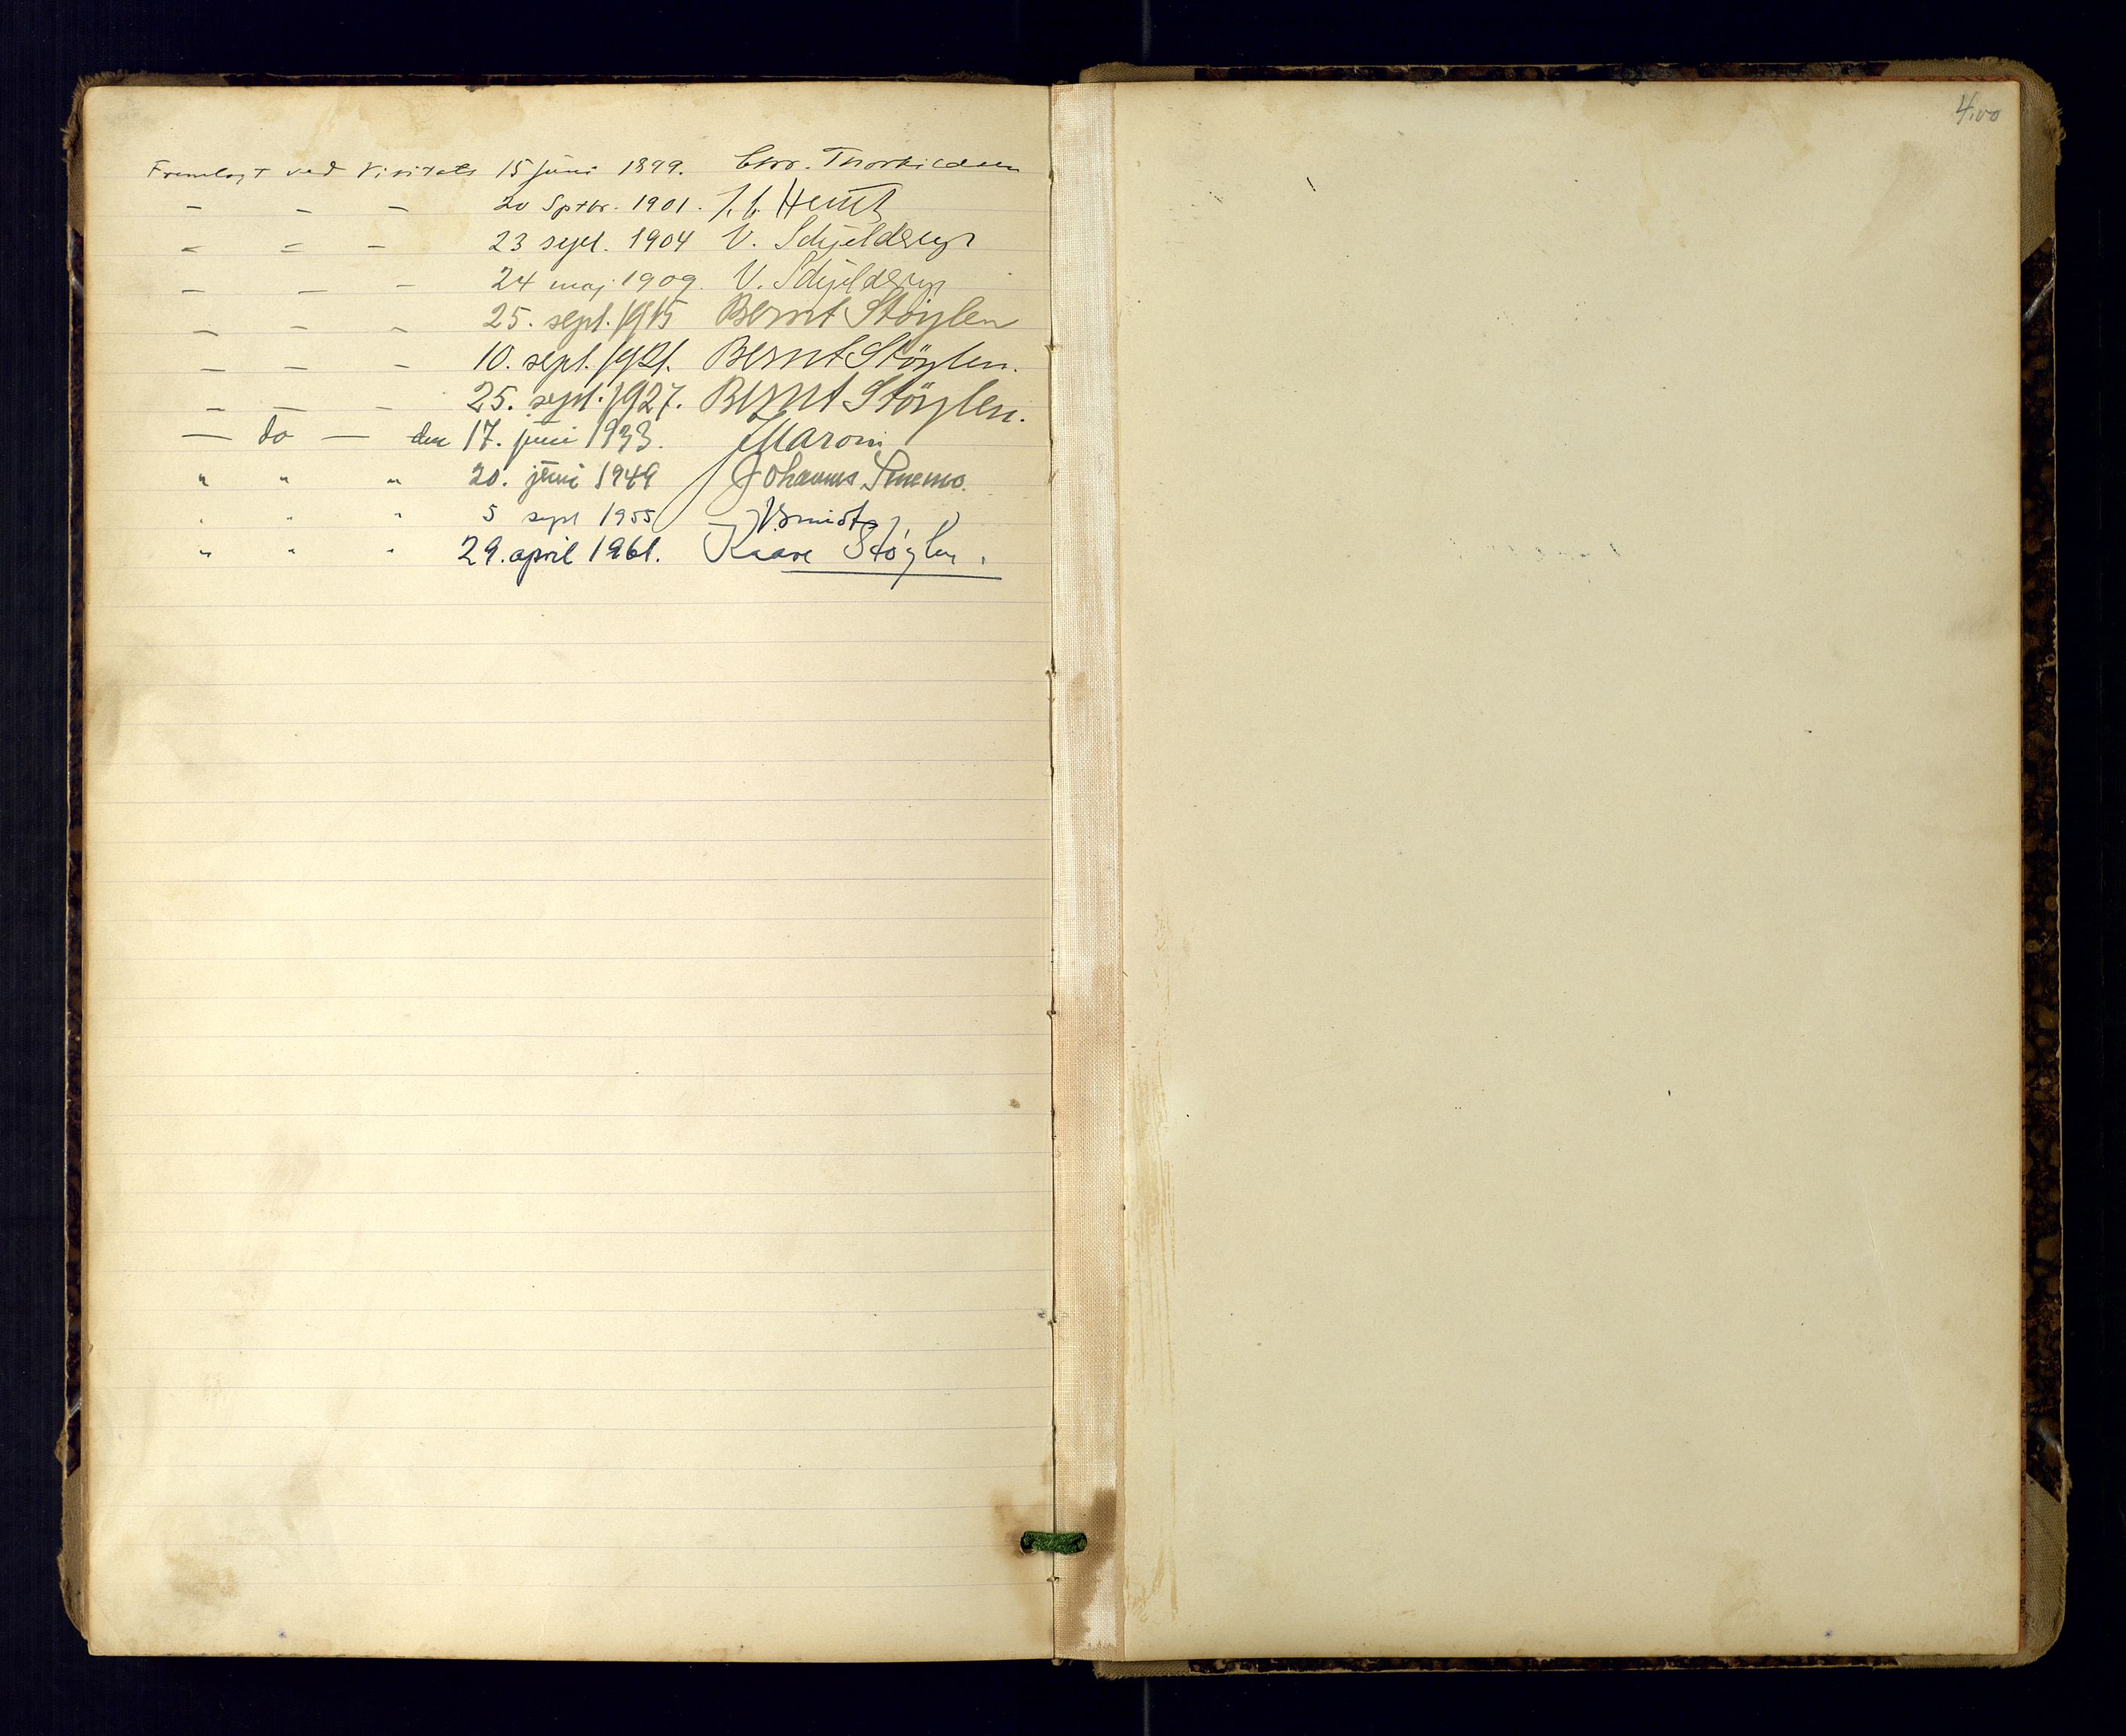 Fremlagt ved Visitats 15 juni 1899. Chr. Thorkildsen
— — — 20 Sptbr. 1901. J. C. Heuch
— — — 23 sept. 1904 V. Schjelderup
— — — 24 maj 1909. V. Schjelderup
— — — 25. sept. 1915 Bernt Støylen
— — — 10. sept. 1921. Bernt Støylen.
— — — 25. sept. 1927. Bernt Støylen.
— do — den 17. juni 1933. JMaroni
" " " 20. juni 1949 Johannes Smemo.
" " " 5 sept 1955 JSmidt
" " " 29. april 1961. Kaare Støylen.
4.00